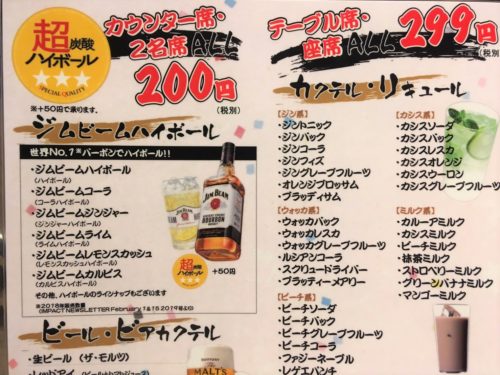 超炭酸
ハイボール
SPECIAL QUALITY
※+50円で承ります。
カウンター席・
2名席ALL
200円
(税別)
テーブル席・
座席ALL 299円
(税別)
ジムビームハイボール
世界No.1※バーボンでハイボール!!
・ジムビームハイボール
(ハイボール)
・ジムビームコーラ
(コーラハイボール)
・ジムビームジンジャー
(ジンジャーハイボール)
・ジムビームライム
(ライムハイボール)
・ジムビームレモンスカッシュ
(レモンスカッシュハイボール)
・ジムビームカルピス
(カルピスハイボール)
その他、ハイボールのラインナップもございます
JIM BEAM
BOURBON
超炭酸
ハイボール
+50円
※2018年販売数量
(IMPACT NEWSLETTER February 1&15 2019号より)
ビール・ビアカクテル
・生ビール (ザ・モルツ)
・レッドアイ (ビール+トマトジュース)
SUNTORY
MALT'S
カクテル・リキュール
【ジン系】
・ジントニック
・ジンバック
・ジンコーラ
・ジンフィズ
・ジングレープフルーツ
・オレンジブロッサム
・ブラッディサム
【ウォッカ系】
・ウォッカバック
・ウォッカレスカ
・ウォッカグレープフルーツ
・ルシアンコーラ
・スクリュードライバー
・ブラッティーメアリー
【ピーチ系】
・ピーチソーダ
・ピーチバック
・ピーチグレープフルーツ
・ピーチコーラ
・ファジーネーブル
・レゲエパンチ
【カシス系】
・カシスソーダ
・カシスバック
・カシスレスカ
・カシスオレンジ
・カシスウーロン
・カシスグレープフルーツ
【ミルク系】
・カルーアミルク
・カシスミルク
・ピーチミルク
・抹茶ミルク
・ストロベリーミルク
・グリーンバナナミルク
・マンゴーミルク